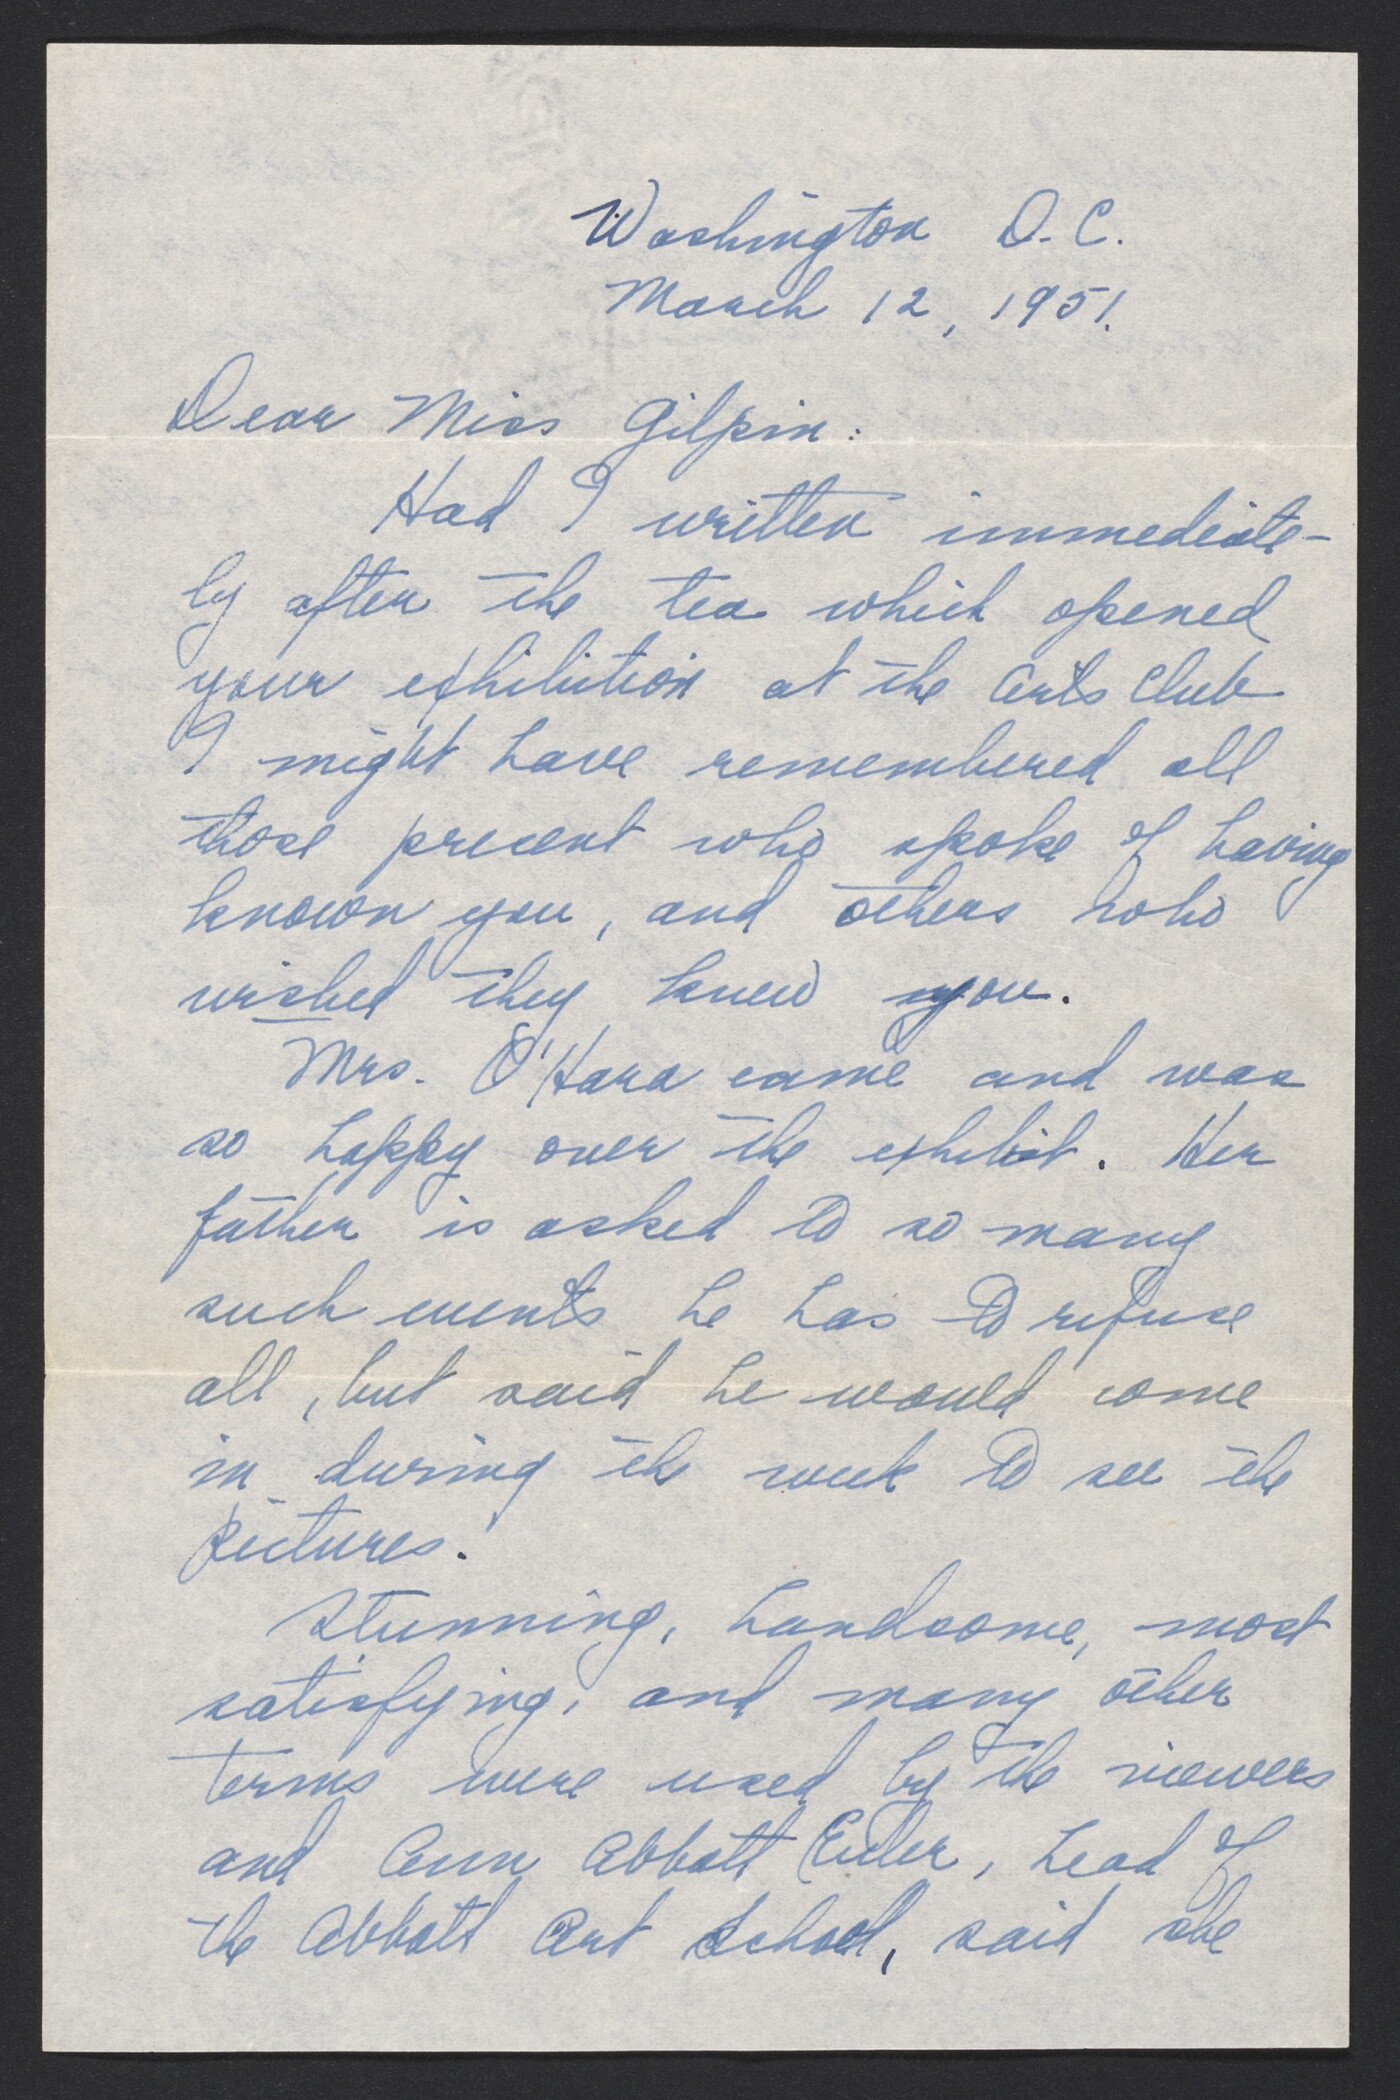 Washington D.C.
March 12, 1951.
Dear Miss Gilpin:
Had I written immediate-
ly after the tea which opened
your exhibition at the Arts Club
I might have remembered all
those present who spoke of having
known you, and others who
wished they knew you.
Mrs. O'Hara came and was
so happy over the exhibit. Her
father is asked to so many
such events he has to refuse
all, but said he would come
in during the week to see the
pictures.
Stunning, handsome, most
satisfying, and many other
terms were used by the viewers
and Ann Abbott Euler, head of
the Abbott Art School, said she